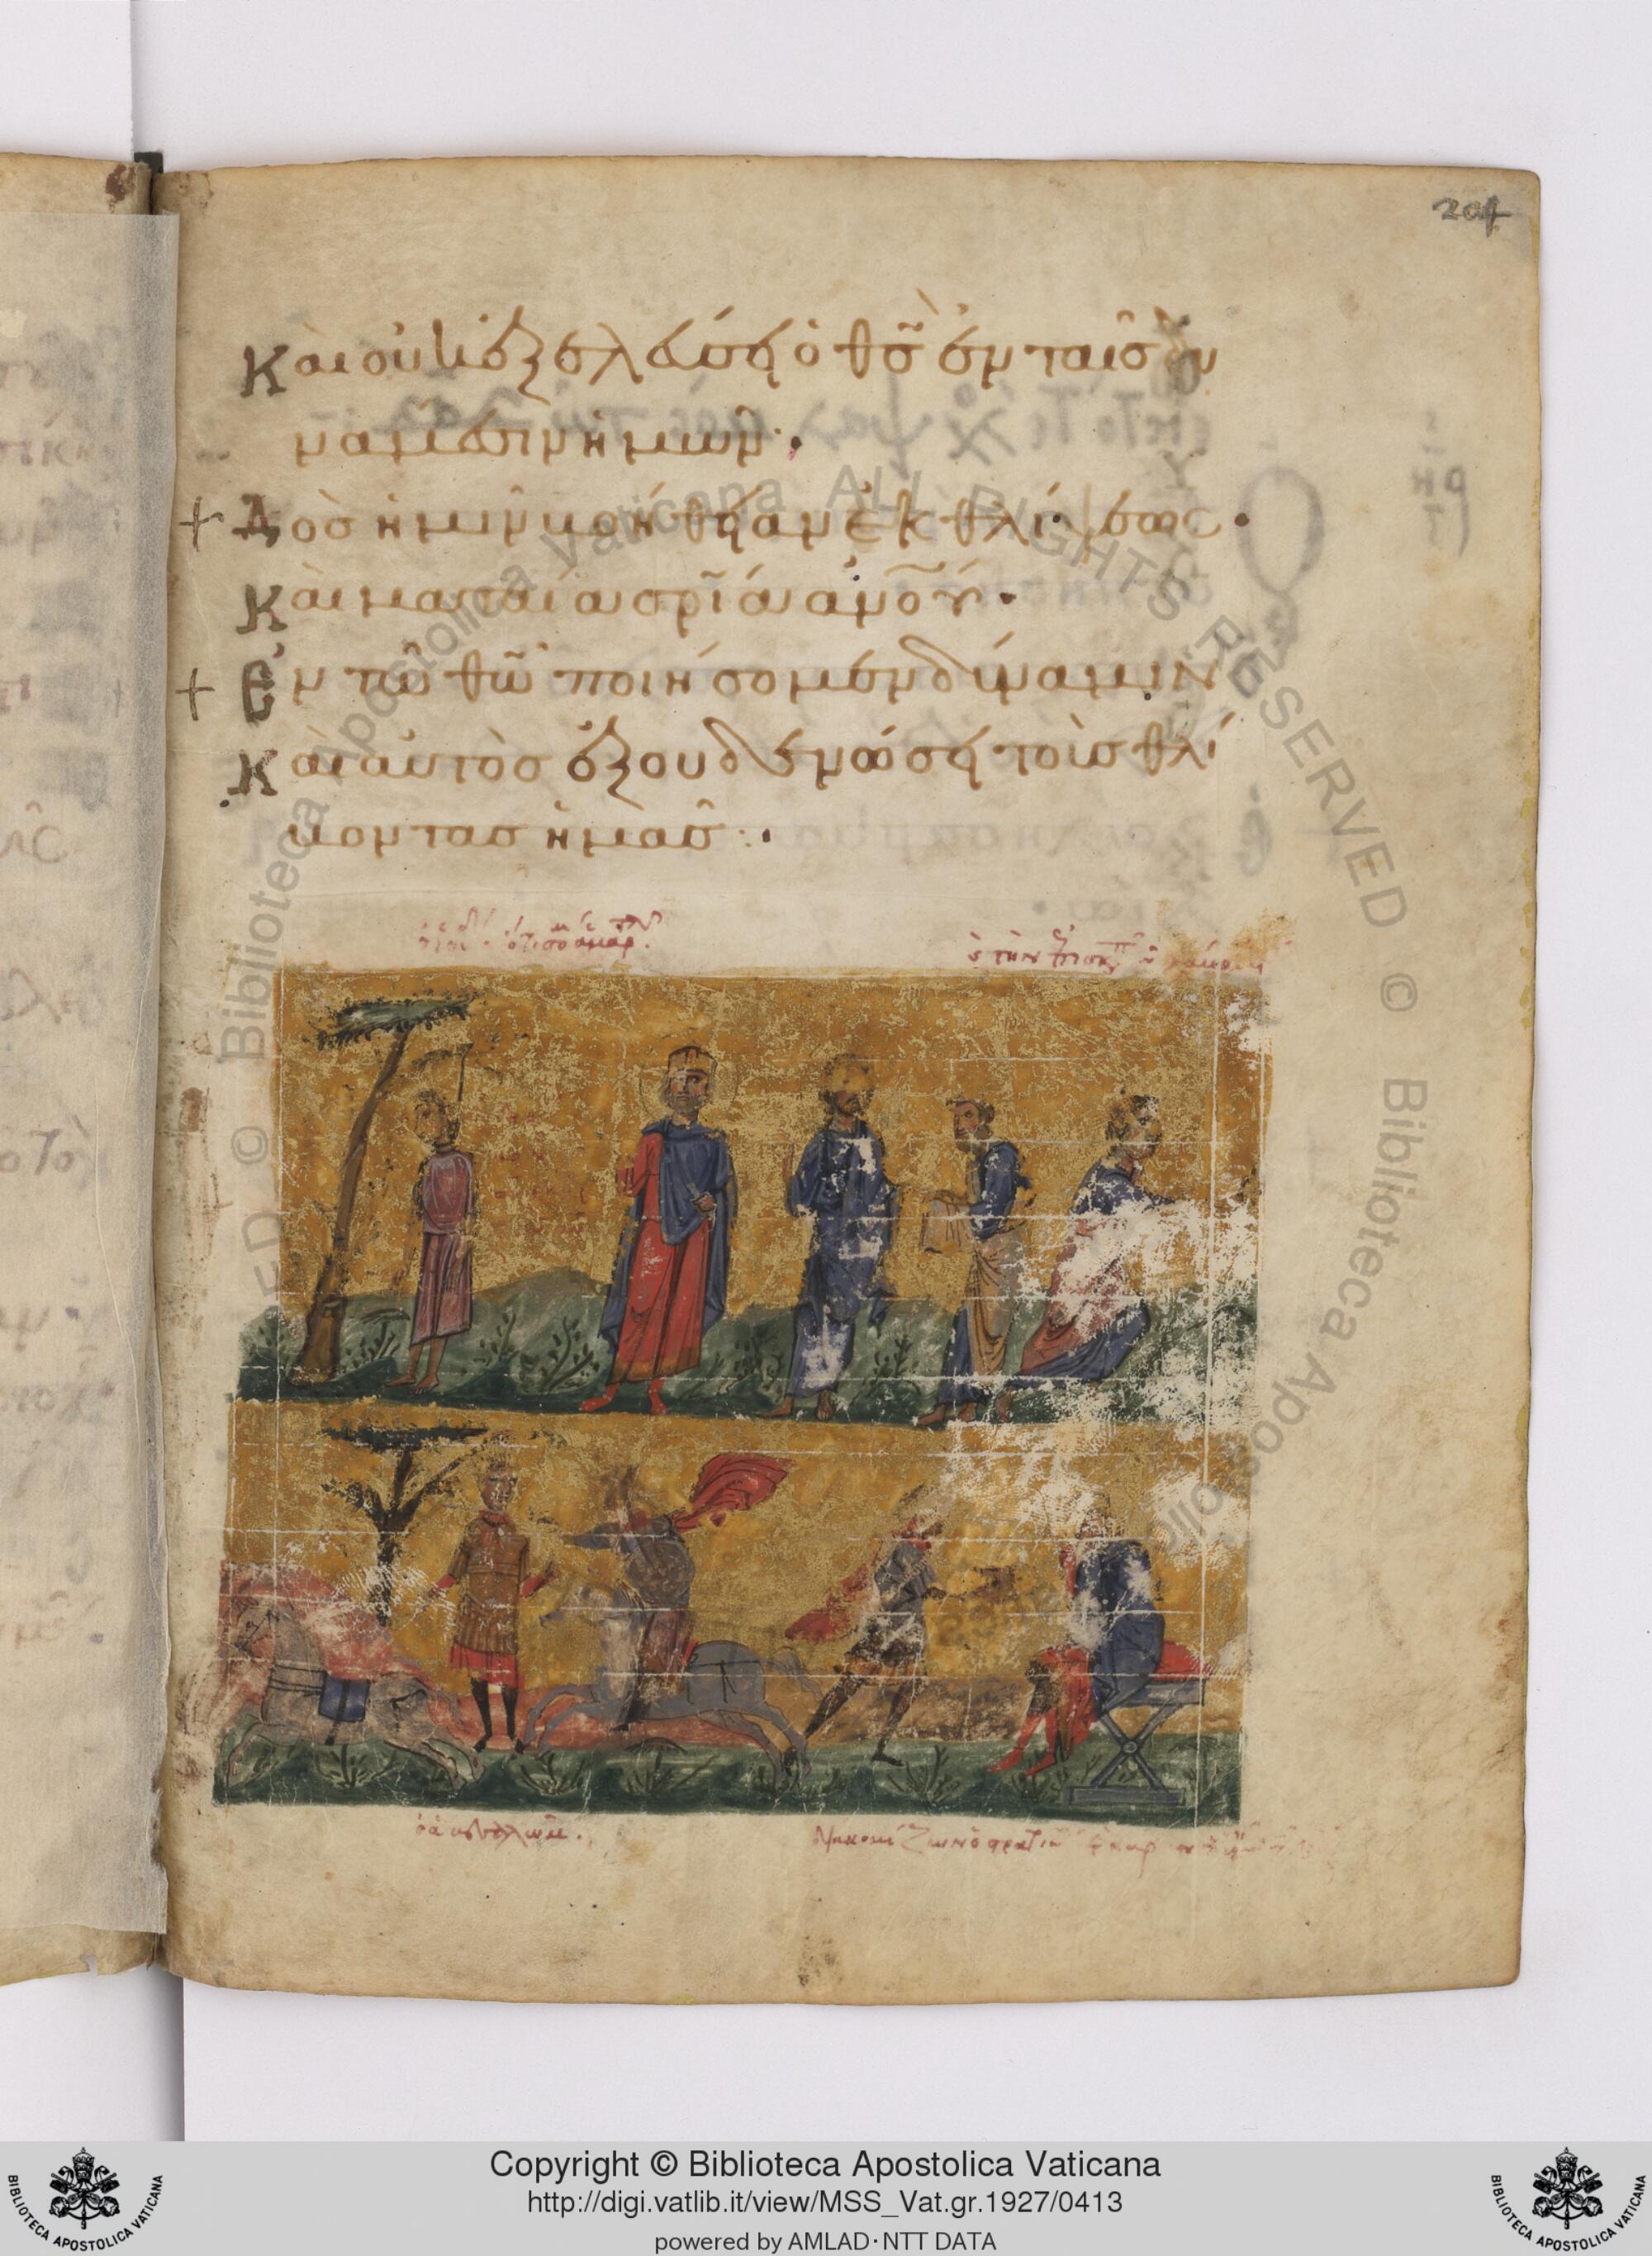 204
Καὶ οὐκ ἐξελεύσῃ ὁ θς ἐν ταῖς δυ
νάμεσιν ἡμῶν·
+ Δὸς ἡμῖν βοήθειαν ἐκ θλίψεως·
Καὶ ματαία σρία ἀνου·
+ Ἐν τῶ θω ποιήσομεν δύναμιν
Καὶ αὐτὸς ἐξουδενώσει τοὺς θλί
βοντας ἡμᾶς·
Copyright © Biblioteca Apostolica Vaticana
http://digi.vatlib.it/view/MSS_Vat.gr.1927/0413
powered by AMLAD·NTT DATA
BIBLIOTECA APOSTOLICA VATICANA
BIBLIOTECA APOSTOLICA VATICANA
Biblioteca Apostolica Vaticana ALL RIGHTS RESERVED © Biblioteca Apostolica